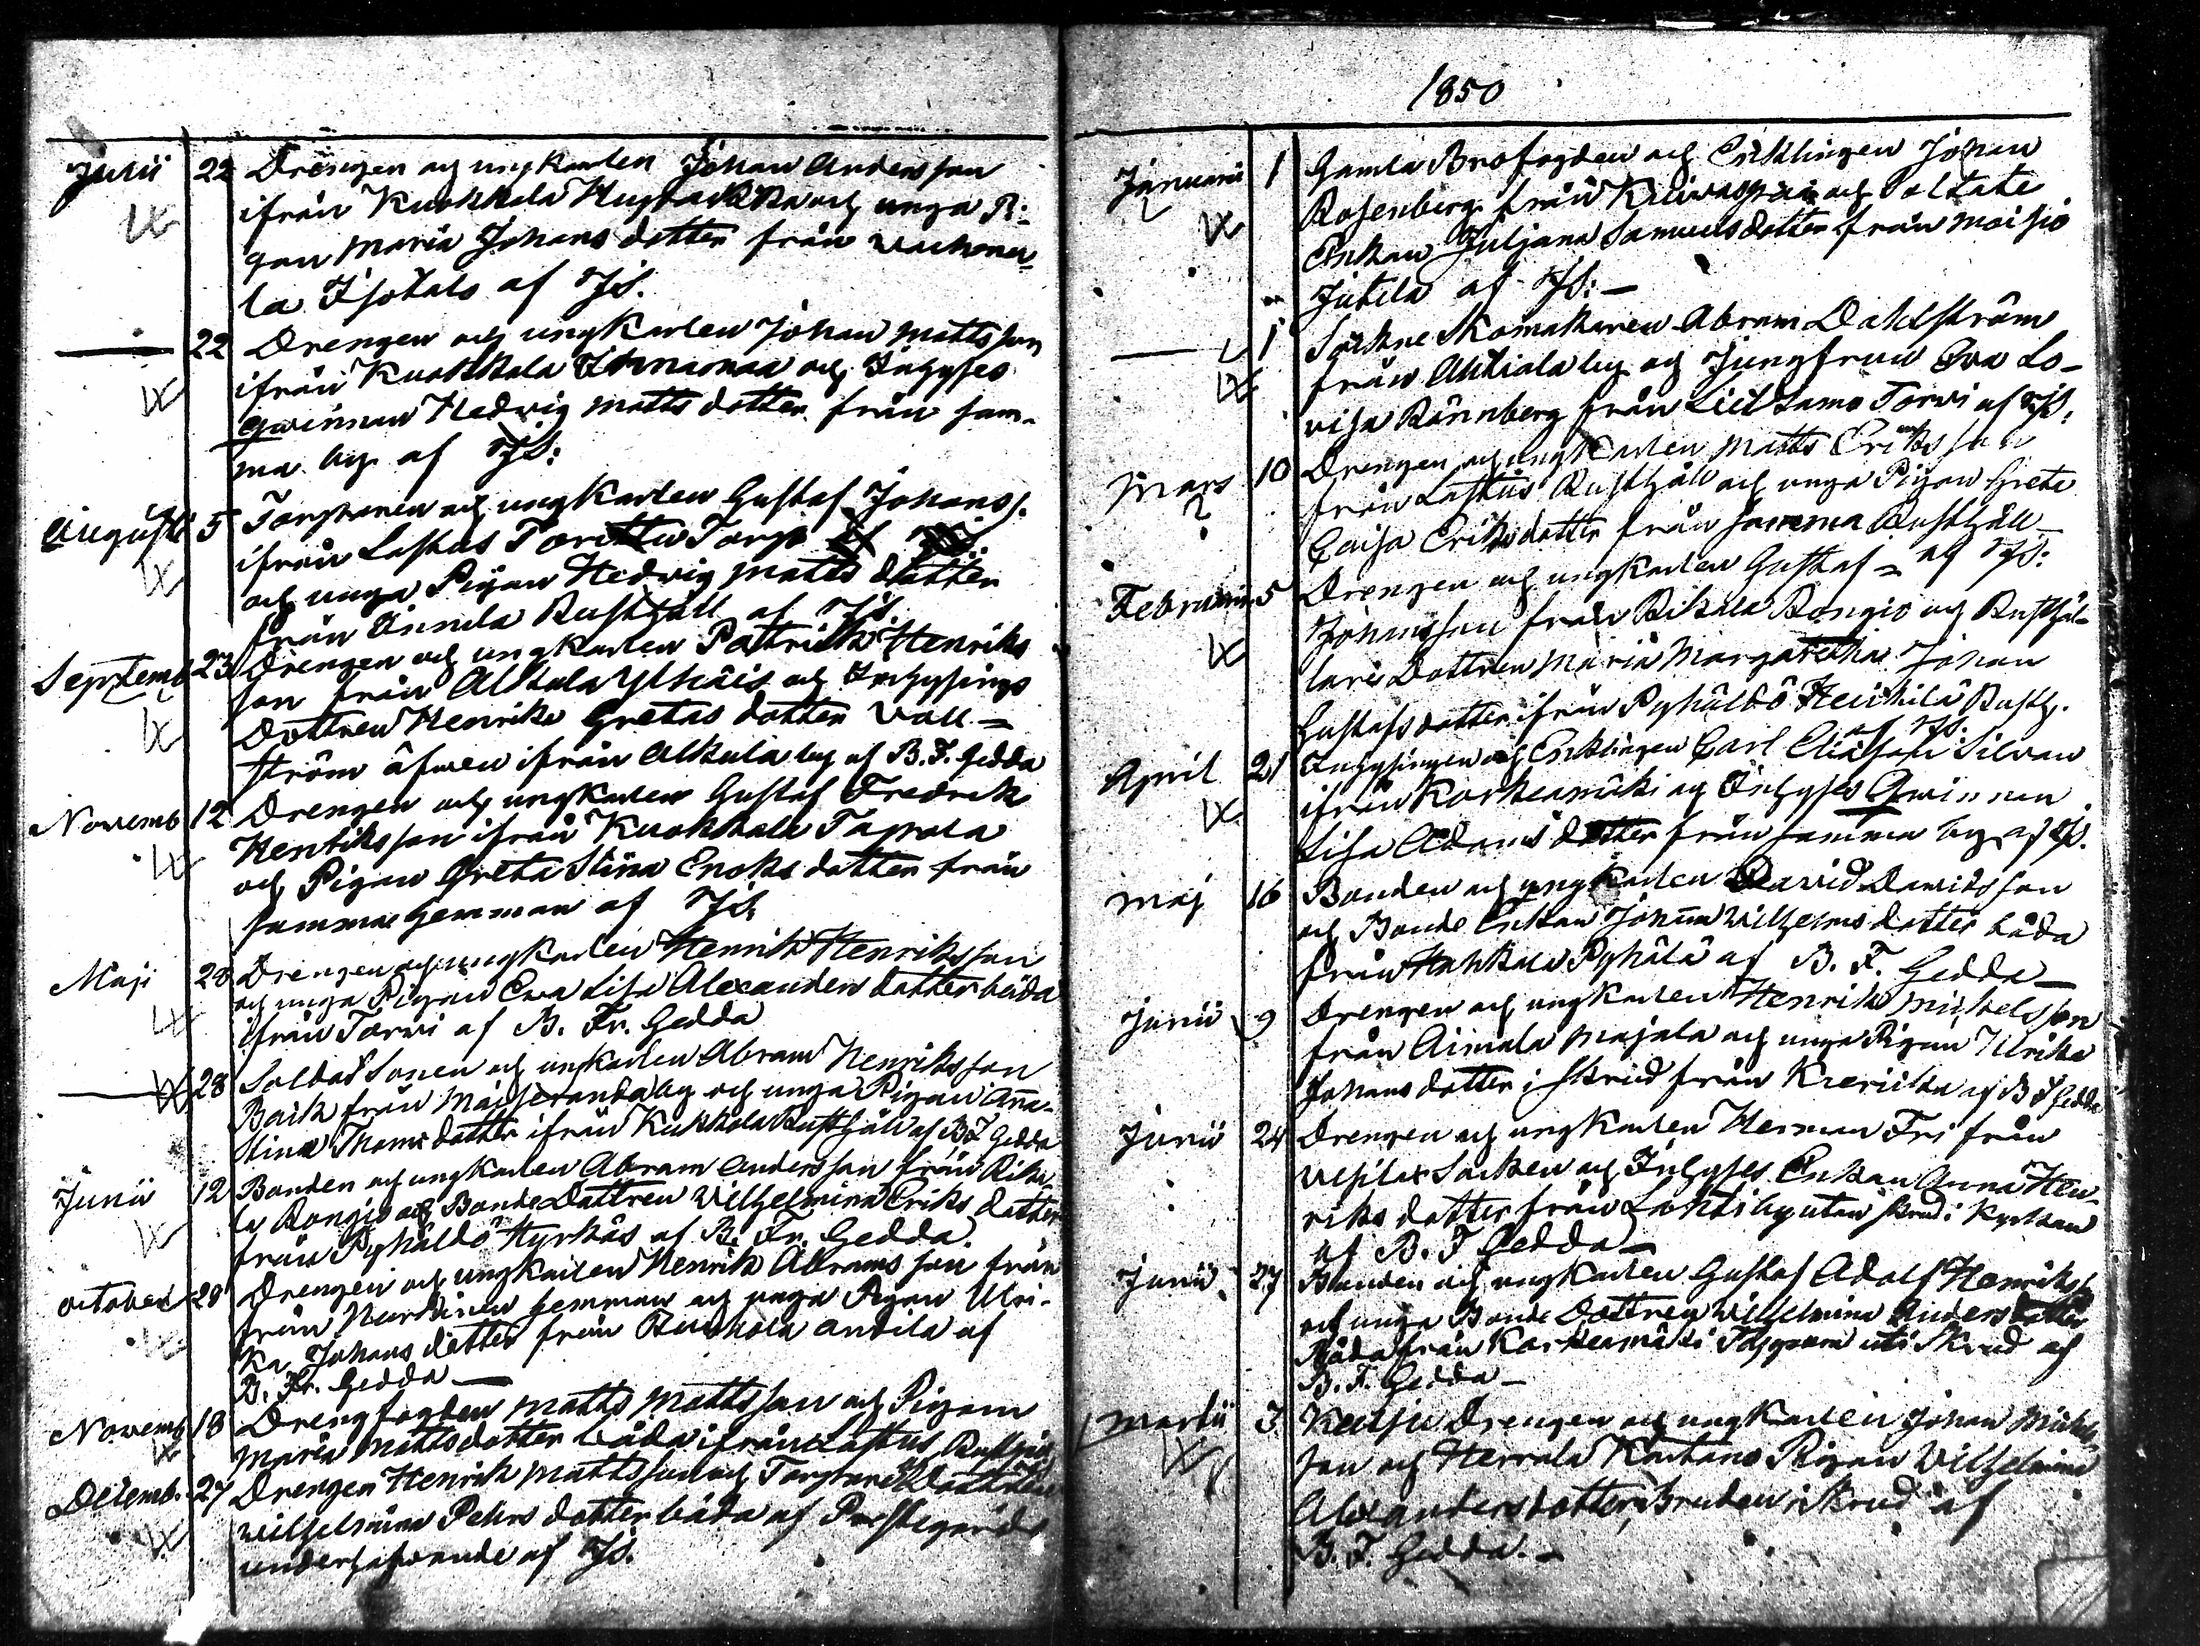 Junii 22 Drengen och ungkarlen Johan Andersson
ifrån Kuokkala och unga Pi-
gan Maria Johans dotter från
la Isotalo af
22 Drengen och ungkarlen Johan Mattsson
ifrån Kuokkala och Inhyses
qwinnan Hedvig Matts dotter från sam-
ma by af
Augusti 5 Torparen och ungkarlen Gustaf Johanss.
ifrån Laskus Torp
och unga Pigan Hedvig Matts dotter
från Annula Rusthåll af
Septemb 23 Drengen och ungkarlen Pattrick Henriks
son från Alkula Ylhäis och Inhysings
Dottren Henrika Gretas dotter Wall-
ström äfwen ifrån Alkula by af B. F. Gedda
Novemb 12 Drengen och ungkarlen Gustaf Fredrik
Henriksson ifrån Kuokkala Tappola
och Pigan Greta Stina Enoks dotter från
samma hemman af
Maji 28 Drengen och ungkarlen Henrik Henriksson
och unga Pigan Eva Lisa Alexanders dotter båda
ifrån Torvi af B. Fr. Gedda
28 Soldat Sonen och ungkarlen Abram Henriksson
Back från by och unga Pigan Anna
Stina Thomas dotter ifrån Kukkola Rusthåll af B F Gedda
Junii 12 Bonden och ungkarlen Abram Andersson från Rika
la Rongio och Bonde Dottren Wilhelmina Eriks dotter
från Pyhäldö Hyrkäs af B. Fr. Gedda
October 28 Drengen och ungkarlen Henrik Abramsson från
från hemman och unga Pigan Ulri-
ka Johans dotter från Andila af
B. Fr. Gedda
Novemb 18 Drengfogden Matts Mattsson och Pigan
Maria Matts dotter båda ifrån Laskus
Decemb. 27 Drengen Henrik Mattsson och Torpare Dottren
Wilhelmina Pehrs dotter båda af Prestegårds
underhafwande af
1850
Januarii 1 Gamla Brofogden och Enklingen Johan
Rosenberg från och Soldate
Enkan Juljana Samuels dotter från Moisio
Jutila af
1 Sockne Skomakaren Abram Dahlström
från Ahtiala by och Jungfrun Eva Lo-
visa Rönnberg från Lielsamo Torvi af
Mars 10 Drengen och ungkarlen Matts Eriksson
från Laskus Rusthåll och unga Pigan Greta
Caisa Eriksdotter från samma Rusthåll
Februarii 5 Drengen och ungkarlen Gustaf = af
Johansson från Rikala Rongio och Rusthål-
lare Dottren Maria Margaretha Johan
Gustafs dotter ifrån Pyhäldö Heickilä Rusth.
April 21 Inhysingen och Enklingen Carl Eliasson Silvan
ifrån Korkeamäki och Inhyses Qwinnan
Lisa Adams dotter från samma by af
Maj 16 Bonden och ungkarlen David Davidsson
och Bonde Enkan Johanna Wilhelms dotter båda
från Hahkala Pyhälä af B. F. Gedda
Junii 9 Drengen och ungkarlen Henrik Michelsson
från Aimala Majala och unga Pigan Ulrika
Johans dotter i skrud från af B F Gedda
Junii 24 Drengen och ungkarlen Herman Fri från
Vesilax Socken och Inhyses Enkan Anna Hen-
riks dotter från Lahti by utan skrud i kyrkan
af B. F Gedda
Junii 27 Bonden och ungkarlen Gustaf Adolf Henrikss
och unga Bonde Dottren Wilhelmina Anders dotter
Båda från Korkeamäki uti Skrud af
B. F. Gedda
Martii 3 Drengen och ungkarlen Johan Michels
son och Herrala Kartano Pigan Wilhelmina
Alexanders dotter, Bruden i Skrud af
B. F. Gedda.